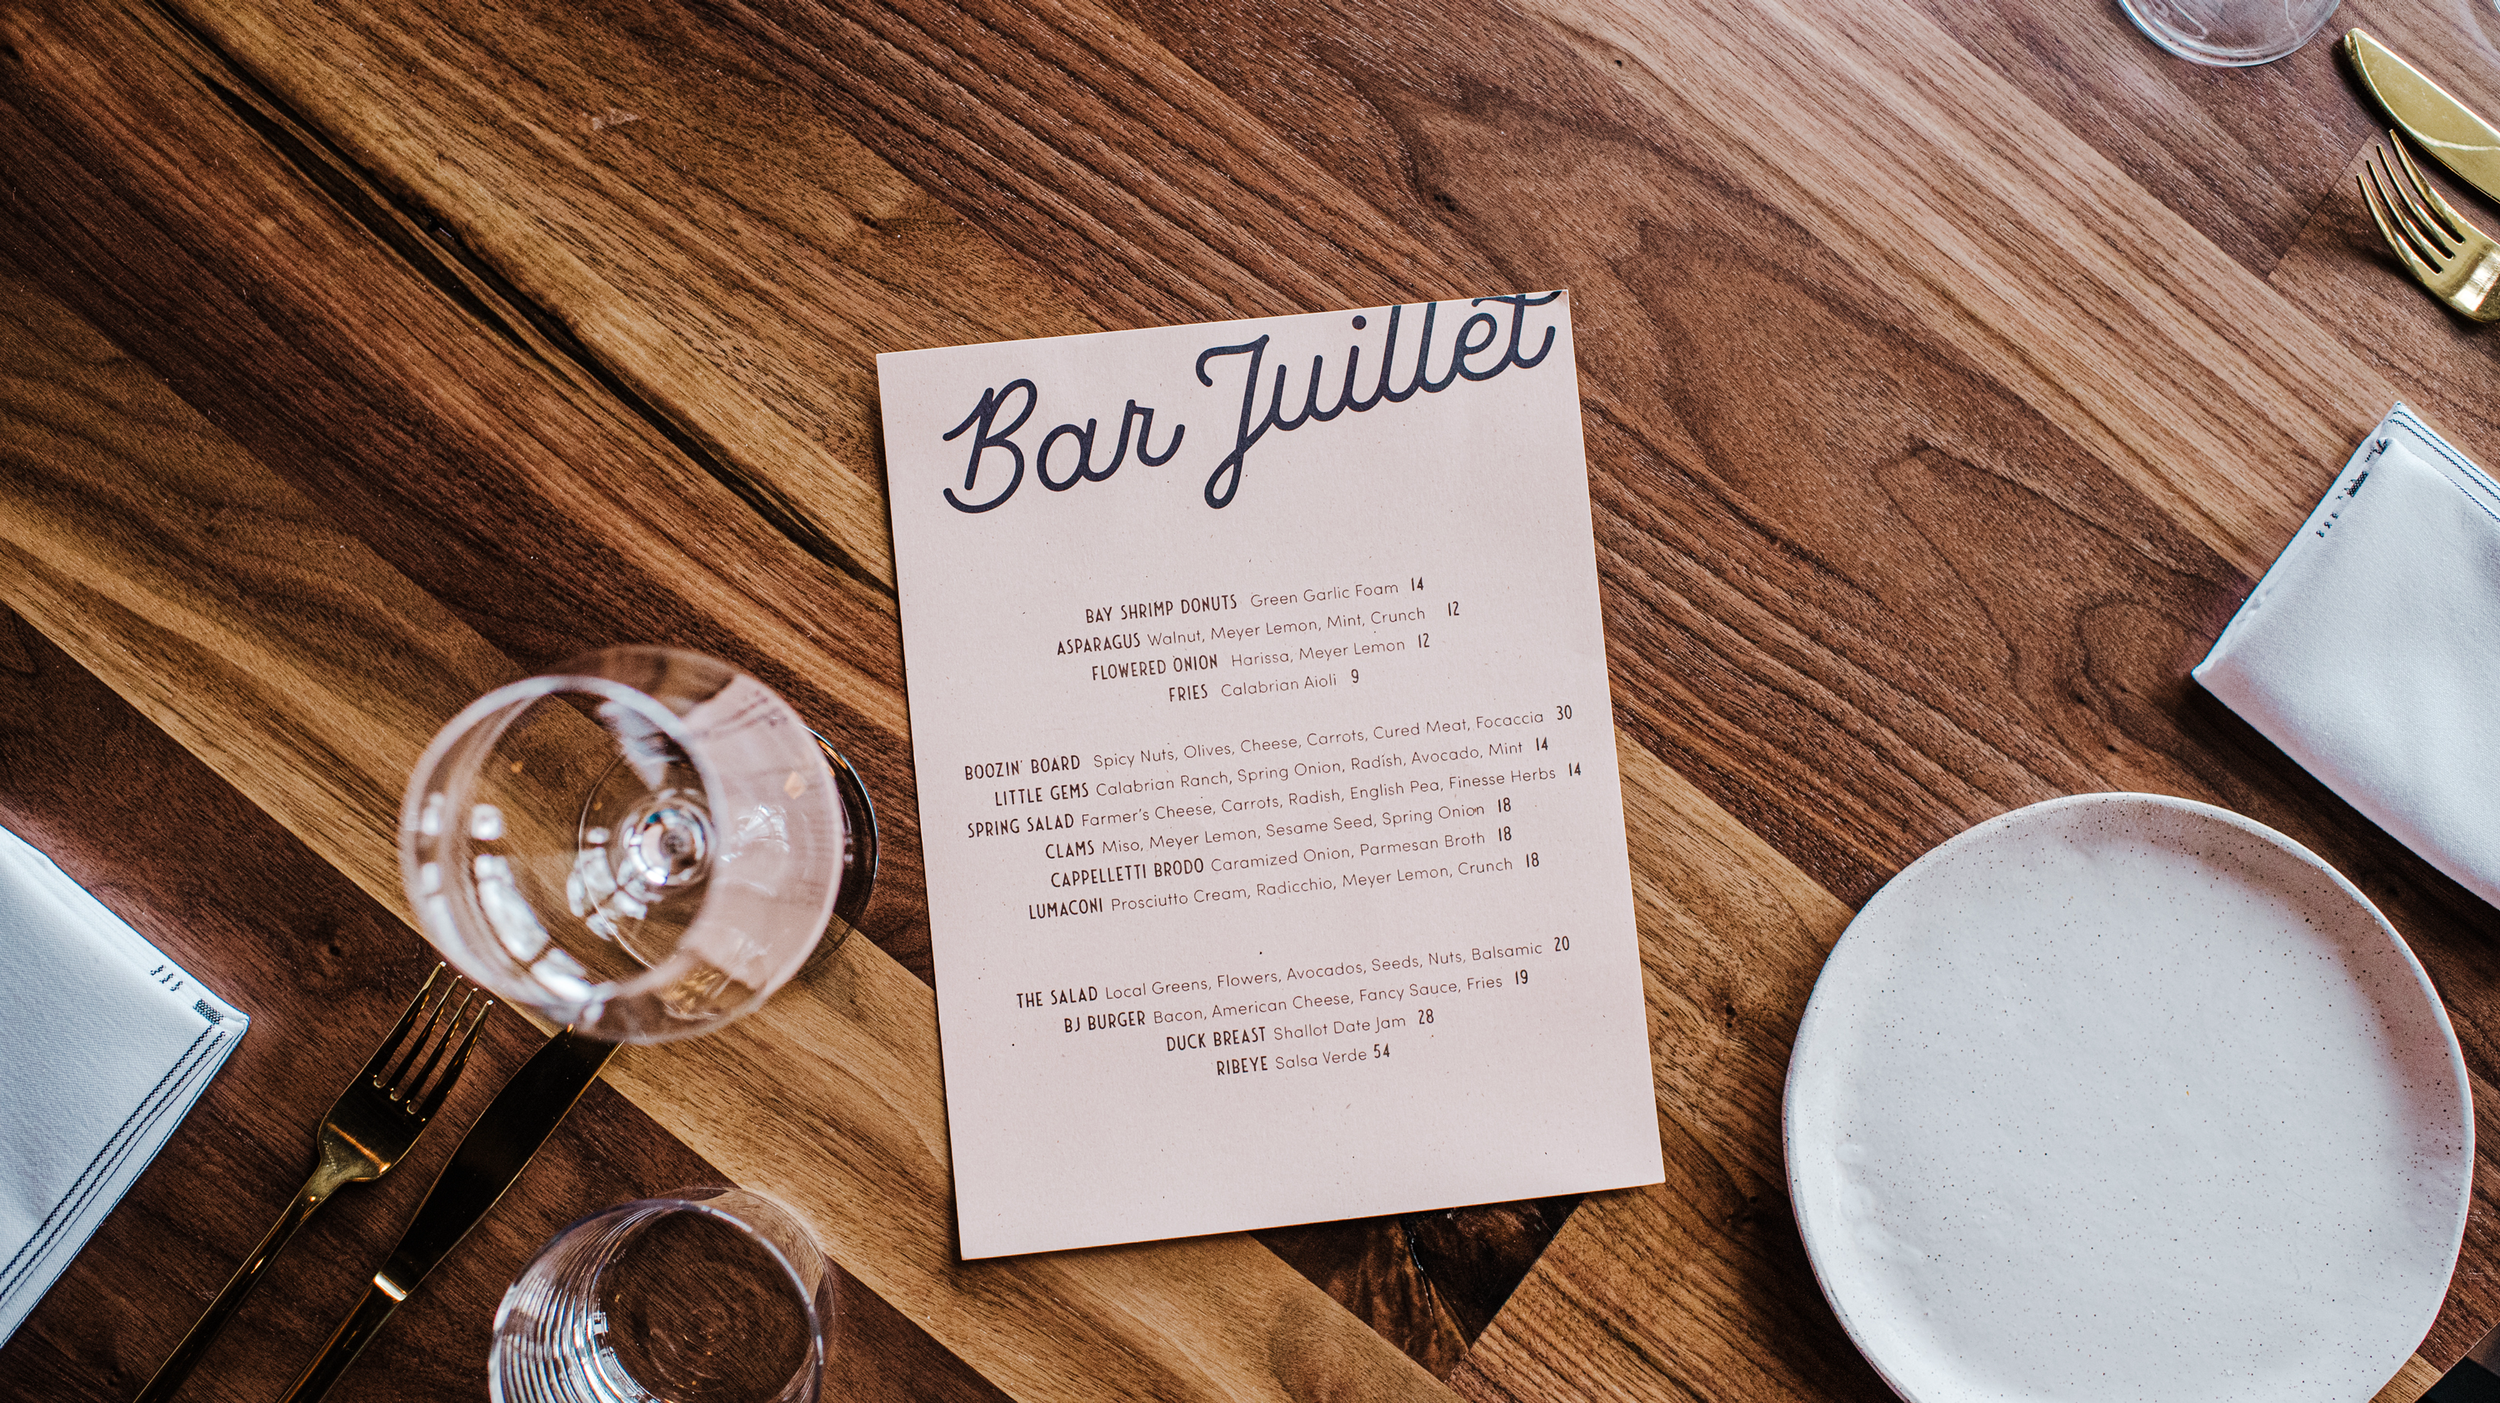 Bar Juillet
BAY SHRIMP DONUTS Green Garlic Foam 14
ASPARAGUS Walnut, Meyer Lemon, Mint, Crunch 12
FLOWERED ONION Harissa, Meyer Lemon 12
FRIES Calabrian Aioli 9
BOOZIN' BOARD Spicy Nuts, Olives, Cheese, Carrots, Cured Meat, Focaccia 30
LITTLE GEMS Calabrian Ranch, Spring Onion, Radish, Avocado, Mint 14
SPRING SALAD Farmer's Cheese, Carrots, Radish, English Pea, Finesse Herbs 14
CLAMS Miso, Meyer Lemon, Sesame Seed, Spring Onion 18
CAPPELLETTI BRODO Caramized Onion, Parmesan Broth 18
LUMACONI Prosciutto Cream, Radicchio, Meyer Lemon, Crunch 18
THE SALAD Local Greens, Flowers, Avocados, Seeds, Nuts, Balsamic 20
BJ BURGER Bacon, American Cheese, Fancy Sauce, Fries 19
DUCK BREAST Shallot Date Jam 28
RIBEYE Salsa Verde 54